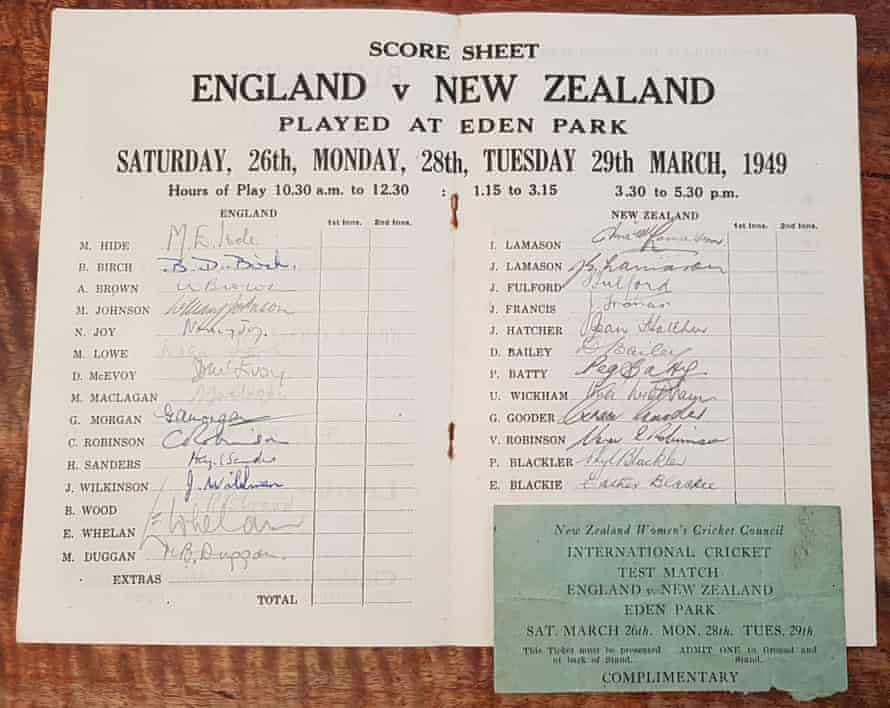 SCORE SHEET
ENGLAND v NEW ZEALAND
PLAYED AT EDEN PARK
SATURDAY, 26th, MONDAY, 28th, TUESDAY 29th MARCH, 1949
Hours of Play 10.30 a.m. to 12.30 : 1.15 to 3.15 3.30 to 5.30 p.m.
ENGLAND
1st Inns. 2nd Inns.
M. HIDE M. E. Hide
B. BIRCH B. D. Birch.
A. BROWN A Brown
M. JOHNSON Johnson
N. JOY Nancy Joy.
M. LOWE
D. McEVOY McEvoy
M. MACLAGAN
G. MORGAN G A Morgan
C. ROBINSON C Robinson
H. SANDERS Sanders
J. WILKINSON J. Wilkinson
B. WOOD
E. WHELAN E Whelan
M. DUGGAN M. B. Duggan.
EXTRAS
TOTAL
NEW ZEALAND
1st Inns. 2nd Inns.
I. LAMASON Ina Lamason
J. LAMASON J. Lamason
J. FULFORD Fulford
J. FRANCIS J Francis
J. HATCHER Joan Hatcher
D. BAILEY D Bailey
P. BATTY Peg Batty
U. WICKHAM Una Wickham
G. GOODER Gooder
V. ROBINSON Robinson
P. BLACKLER Phyl Blackler
E. BLACKIE Esther Blackie
New Zealand Women's Cricket Council
INTERNATIONAL CRICKET
TEST MATCH
ENGLAND v. NEW ZEALAND
EDEN PARK
SAT. MARCH 26th. MON. 28th. TUES. 29th
This Ticket must be presented at back of Stand.
ADMIT ONE to Ground and Stand.
COMPLIMENTARY